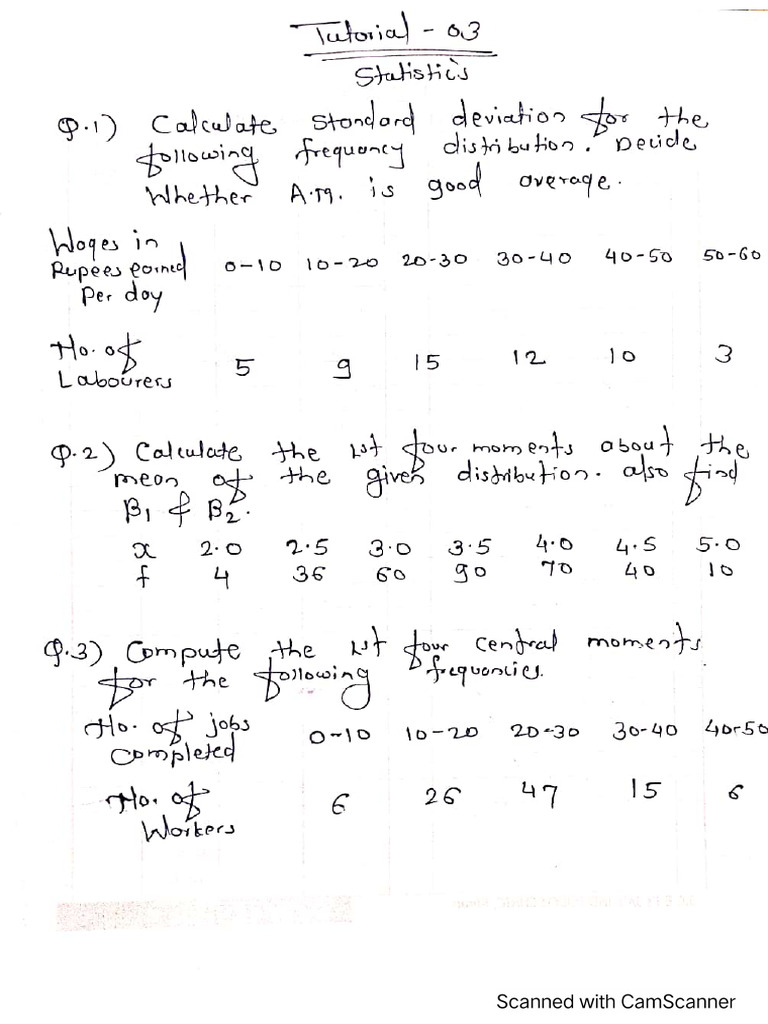 Tutorial - 03
Statistics
Q.1) Calculate standard deviation for the
following frequency distribution. Decide
Whether A.M. is good average.
Wages in
Rupees earned 0-10 10-20 20-30 30-40 40-50 50-60
Per day
No. of
Labourers 5 9 15 12 10 3
Q.2) Calculate the 1st four moments about the
mean of the given distribution. also find
β1 & β2.
x 2.0 2.5 3.0 3.5 4.0 4.5 5.0
f 4 36 60 90 70 40 10
Q.3) Compute the 1st four central moments
for the following frequencies.
No. of jobs
Completed 0-10 10-20 20-30 30-40 40-50
No. of
Workers 6 26 47 15 6
Scanned with CamScanner